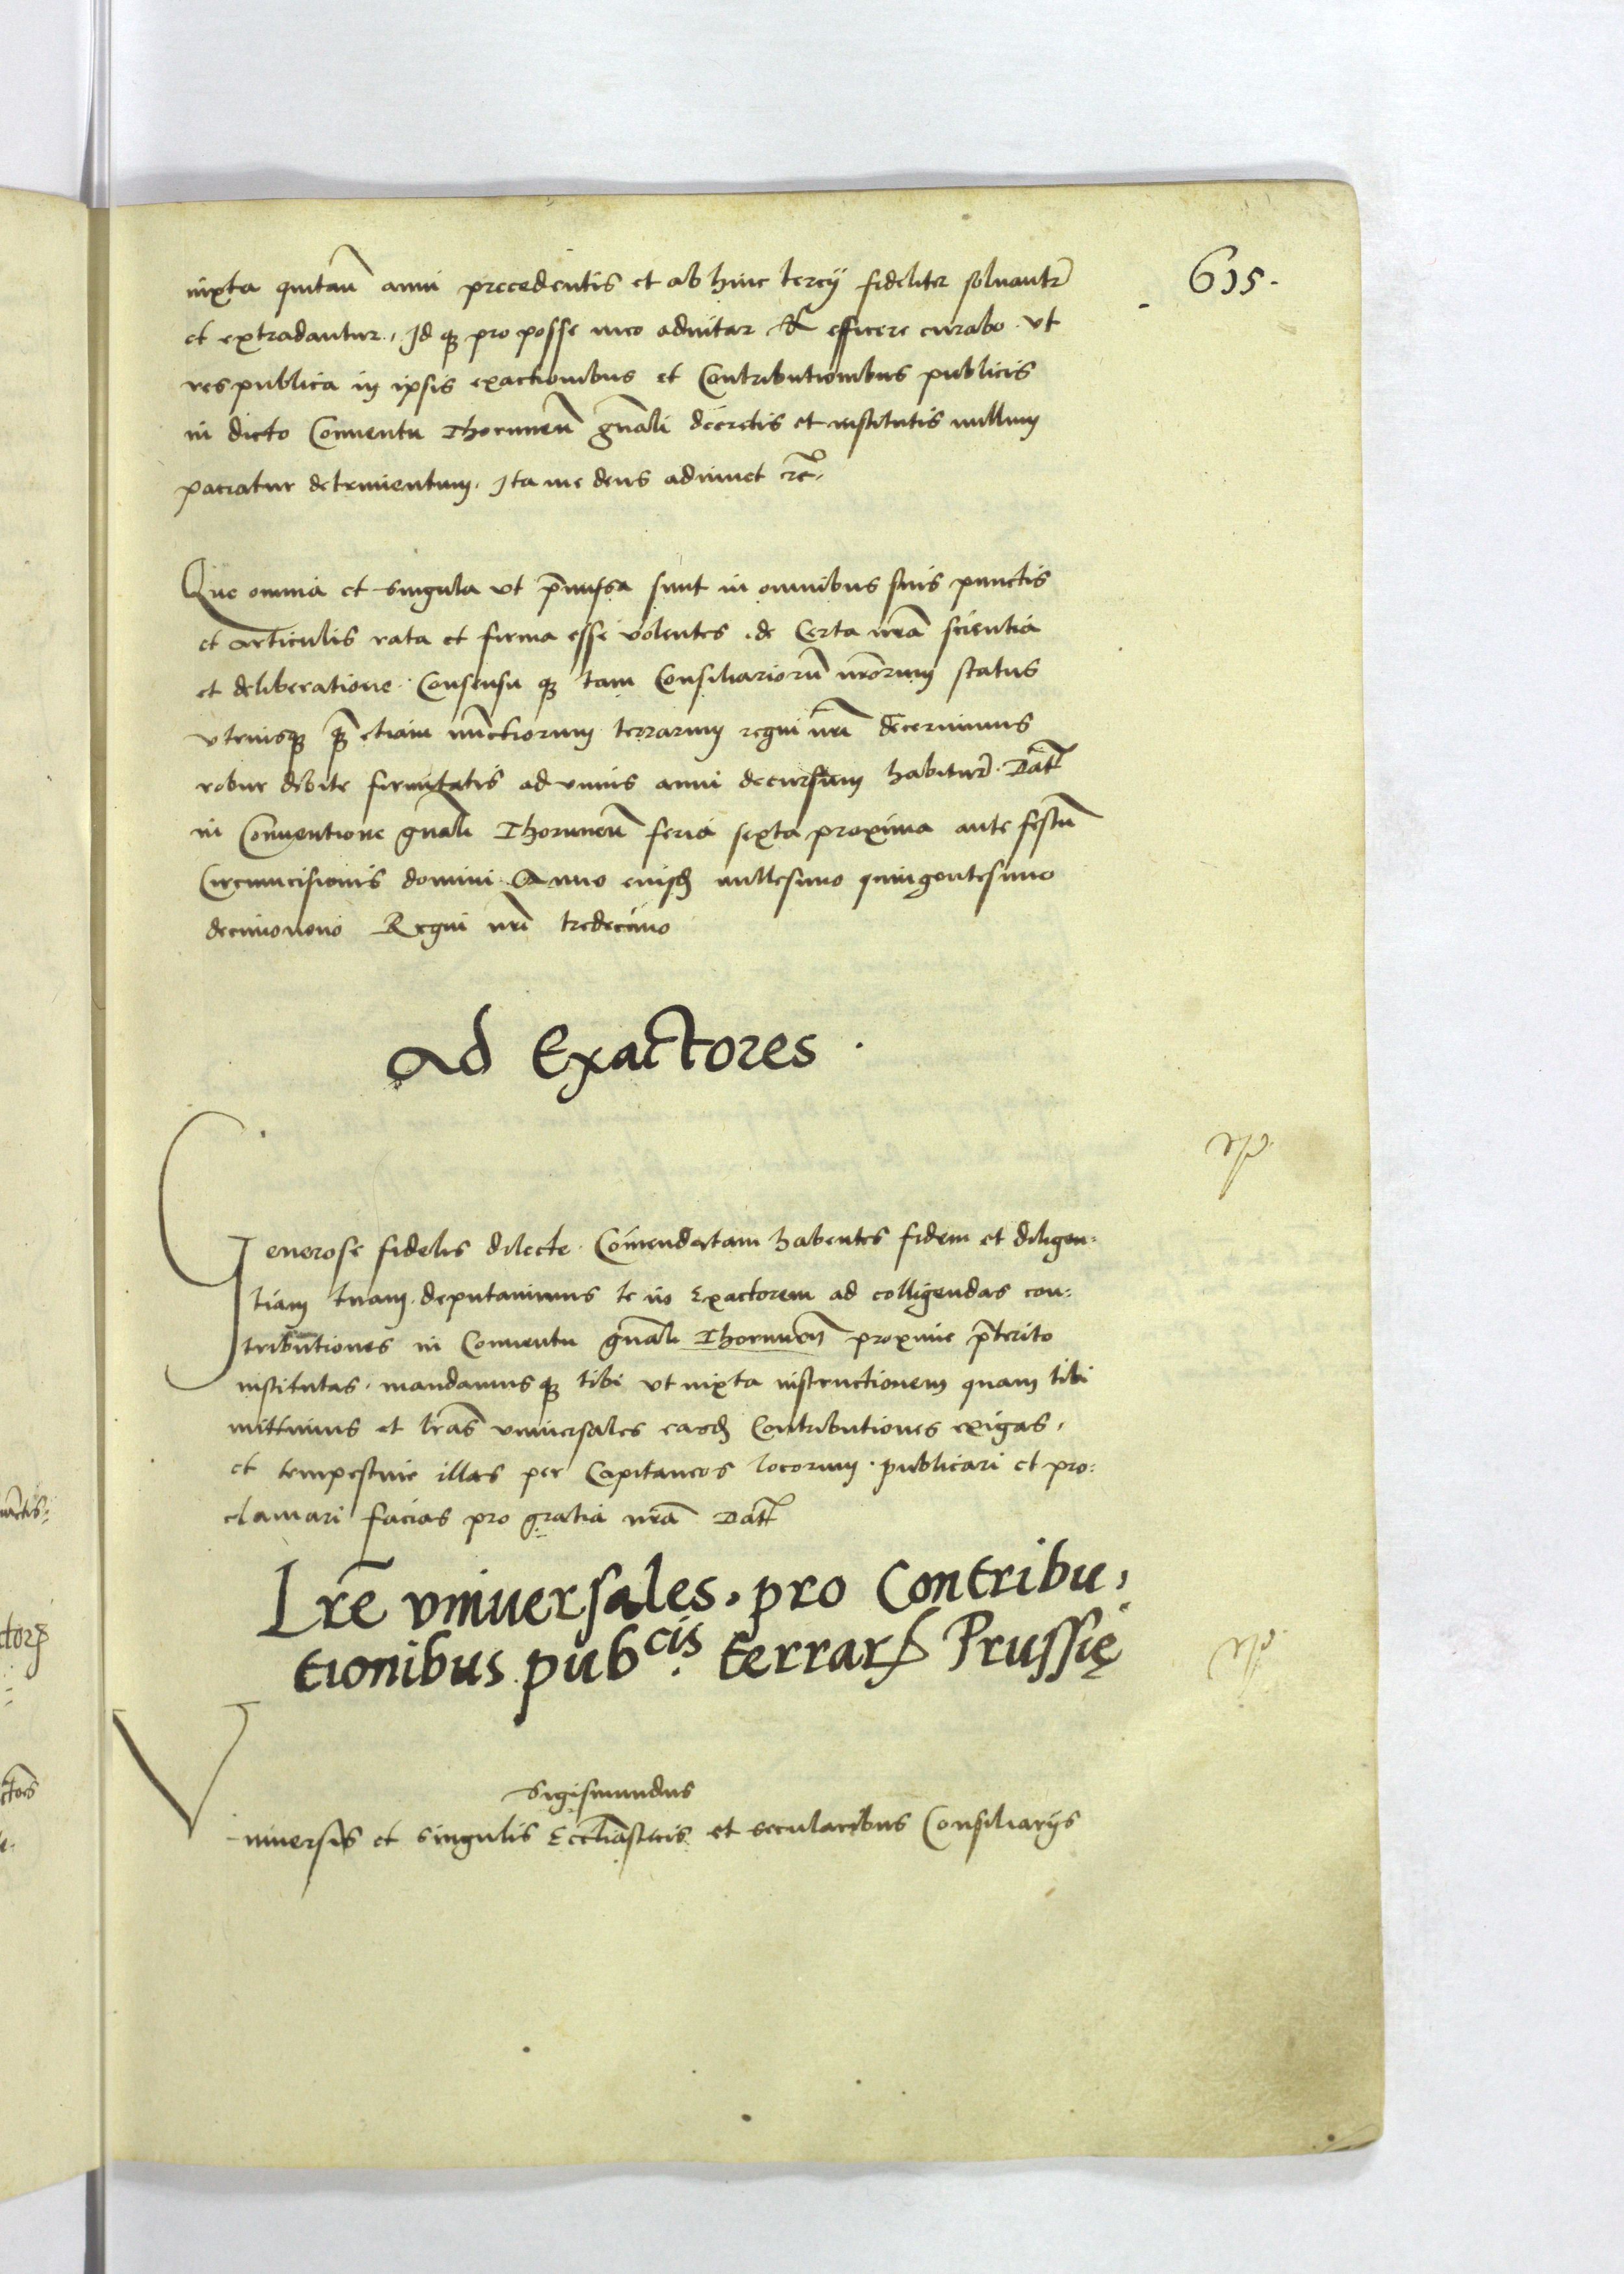 615.
iuxta quitan̄ anni precedentis et ab hinc tercij fideliter soluantr̄
et extradantur, Id q3 pro posse meo adnitar et efficere curabo. vt
res publica in ipsis exactionibus et Contributionibus publicis
in dicto Conuentu Thorunen̄ gn̄ali decretis et institutis nullum
paciatur detrimentum. Ita me deus adiuuet rc̄.
Que omnia et singula vt p̄missa sunt in omnibus suis punctis
et articulis rata et firma esse volentes. de Certa nr̄a scientia
et deliberatione. Consensu q3 tam Consiliariorū nr̄orum status
vtriusq3 q̄3 etiam nūctiorum terrarum regni nr̄i decernimus
robur debite firmitatis ad vnius anni decursum habitur̄. Dat̄
in Conuentione gn̄ali Thorunen̄ feria sexta proxima ante festū
Circumcisionis domini. Anno eiusd̄ millesimo quingentesimo
decimonono Regni nr̄i tredecimo
Ad Exactores.
Generose fidelis dilecte. Comendatam habentes fidem et diligen:
tiam tuam. deputauimus te in Exactorem ad colligendas con:
tributiones in Conuentu gn̄ali Thorunen̄ proxime p̄terito
institutas. mandamus q3 tibi vt iuxta instructionem quam tibi
mittimus et lr̄as vniuersales easd̄ Contributiones exigas,
et tempestiue illas per Capitaneos locorum. publicari et pro:
clamari facias pro gratia nr̄a Dat̄
Lrē vniuersales. pro Contribu,
tionibus pub^cis terrarꝝ Prussię
Sigismundus
Vniuersis et singulis Eccl̄iasticis et secularibus Consiliarijs